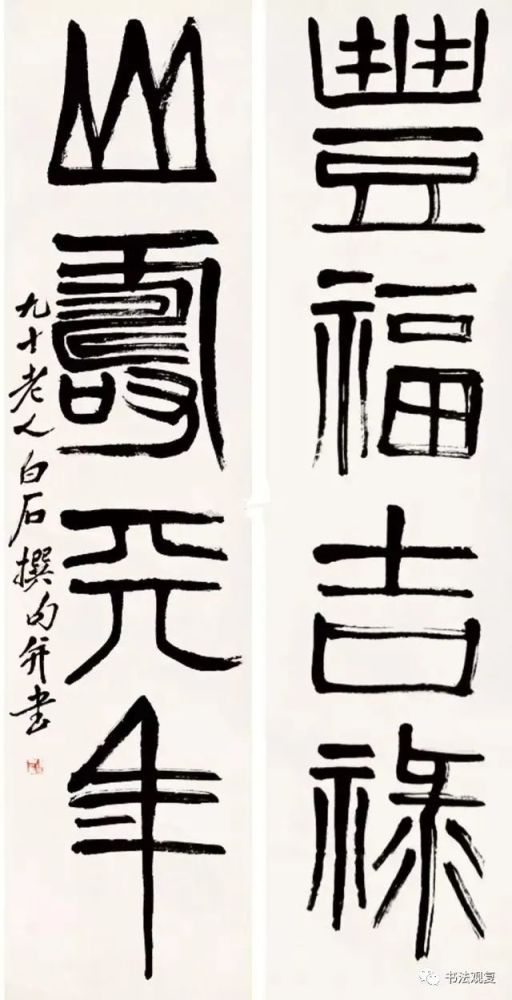 豐福吉祿
山壽年
九十老人白石撰句并書
书法观复